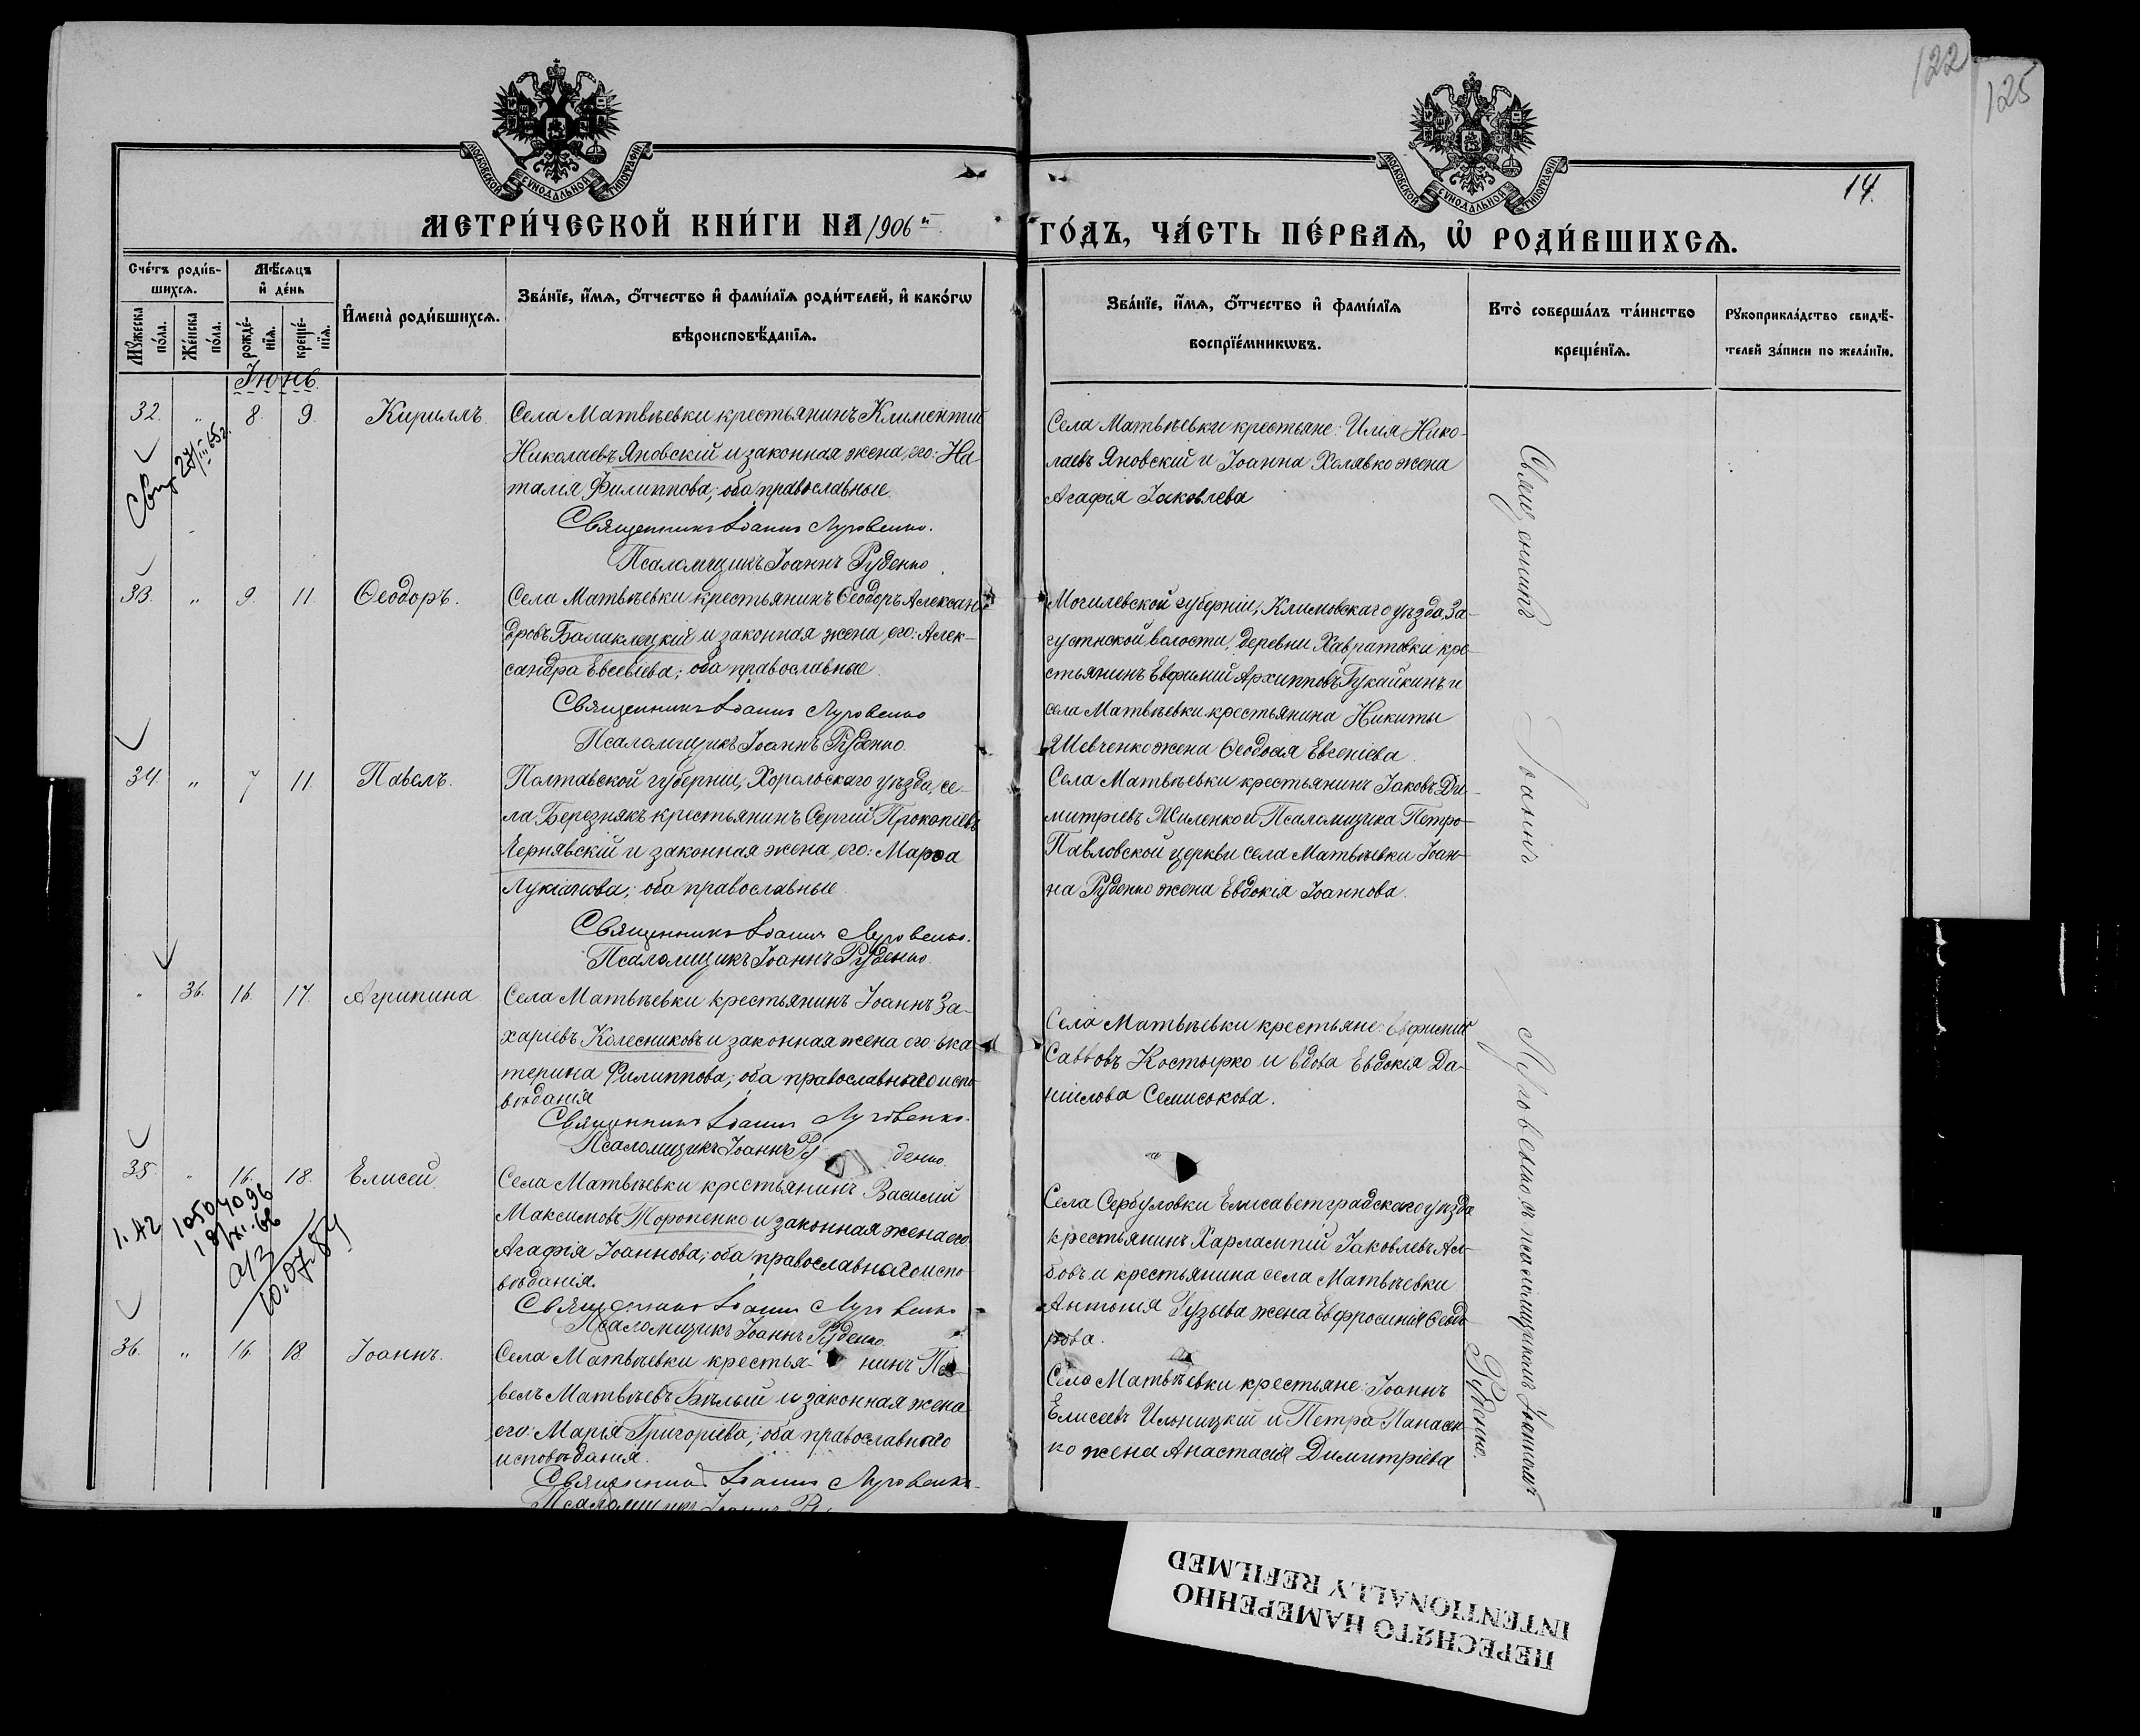 122
125
МОСКОВСКОЙ СѴНОДАЛЬНОЙ ТИПОГРАФІИ
МОСКОВСКОЙ СѴНОДАЛЬНОЙ ТИПОГРАФІИ
14.
МЕТРИ́ЧЕСКОЙ КНИ́ГИ НА 1906й
ГО́ДЪ, ЧА́СТЬ ПЕ́РВАѦ, Ѡ҆ РОДИ́ВШИХСѦ.
Сче́тъ роди́в-
шихсѧ.
Мѣ́сѧцъ
и҆ де́нь
Мꙋ́жеска по́ла.
Же́нска по́ла.
рожде́-
нїѧ.
креще́-
нїѧ.
И҆мена̀ роди́вшихсѧ.
Зва́нїе, и҆́мѧ, ѻ҆́тчество и҆ фами́лїѧ роди́телей, и҆ како́гѡ
вѣроисповѣ́данїѧ.
Зва́нїе, и҆́мѧ, ѻ҆́тчество и҆ фами́лїѧ
воспрїе́мникѡвъ.
Кто̀ соверша́лъ та́инство
креще́нїѧ.
Рꙋкоприкла́дство свидѣ́-
телей за́писи по жела́нїю.
Іюнь.
32. " 8. 9. Кириллъ.
Села Матвѣевки крестьянинъ Климентий
Николаевъ Яновскій и законная жена его: На
талія Филиппова; оба православные.
Священникъ Іоаннъ Луговенко.
Псаломщикъ Іоаннъ Руденко.
Села Матвѣевки крестьяне: Илія Нико-
лаевъ Яновскій и Іоанна Холявко жена
Агафія Іаковлева
33. " 9. 11. Ѳеодоръ.
Села Матвѣевки крестьянинъ Ѳеодоръ Алексан-
дровъ Балаклецкій и законная жена его: Алек-
сандра Евсевіева; оба православные.
Священникъ Іоаннъ Луговенко
Псаломщикъ Іоаннъ Руденко.
Могилевской губерніи, Климовскаго уѣзда, За-
густнской волости, деревни Хавратовки кре-
стьянинъ Евфимій Архипповъ Гукайкинъ и
села Матвѣевки крестьянина Никиты
Шевченко жена Ѳеодосія Евгеніева.
34. " 7 11. Павелъ.
Полтавской губерніи, Хорольскаго уѣзда, се-
ла Березнякъ крестьянинъ Сергій Прокопіевъ
Чернявскій и законная жена его: Марѳа
Лукіанова; оба православные.
Священникъ Іоаннъ Луговенко.
Псаломщикъ Іоаннъ Руденко.
Села Матвѣевки крестьянинъ Іаковъ Ди-
митріевъ Жиленко и Псаломщика Петро-
Павловской церкви села Матвѣевки Іоан-
на Руденко жена Евдокія Іоаннова.
" 36. 16. 17. Агрипина
Села Матвѣевки крестьянинъ Іоаннъ За-
харіевъ Колесниковъ и законная жена его: Ека-
терина Филиппова; оба православнаго испо-
вѣданія
Священникъ Іоаннъ Луговенко.
Псаломщикъ Іоаннъ Руденко.
Села Матвѣевки крестьяне: Евфимій
Саввовъ Костырко и вдова Евдокія Да-
ніилова Семисокова.
35. " 16. 18. Елисей.
Села Матвѣевки крестьянинъ Василій
Максимовъ Торопенко и законная жена его
Агафія Іоаннова; оба православнаго испо-
вѣданія.
Священникъ Іоаннъ Луговенко
Псаломщикъ Іоаннъ Руденко.
Села Сербуловки Елисаветградскаго уѣзда
крестьянинъ Харлампій Іаковлевъ
и крестьянина села Матвѣевки
Антонія жена Евфросинія Ѳеодо-
рова.
36. " 16. 18. Іоаннъ.
Села Матвѣевки крестьянинъ Па-
велъ Матвѣевъ Бѣлый и законная жена
его: Марія Григоріева; оба православнаго
исповѣданія.
Священникъ Іоаннъ Луговенко
Псаломщикъ Іоаннъ
Села Матвѣевки крестьяне: Іоаннъ
Елисеевъ Ильницкій и Петра Панасен-
ко жена Анастасія Димитріева
Священникъ Іоаннъ Луговенко съ псаломщикомъ Іоанномъ
Руденко.
10.07.84
ПЕРЕСНЯТО НАМЕРЕННО
INTENTIONALLY REFILMED